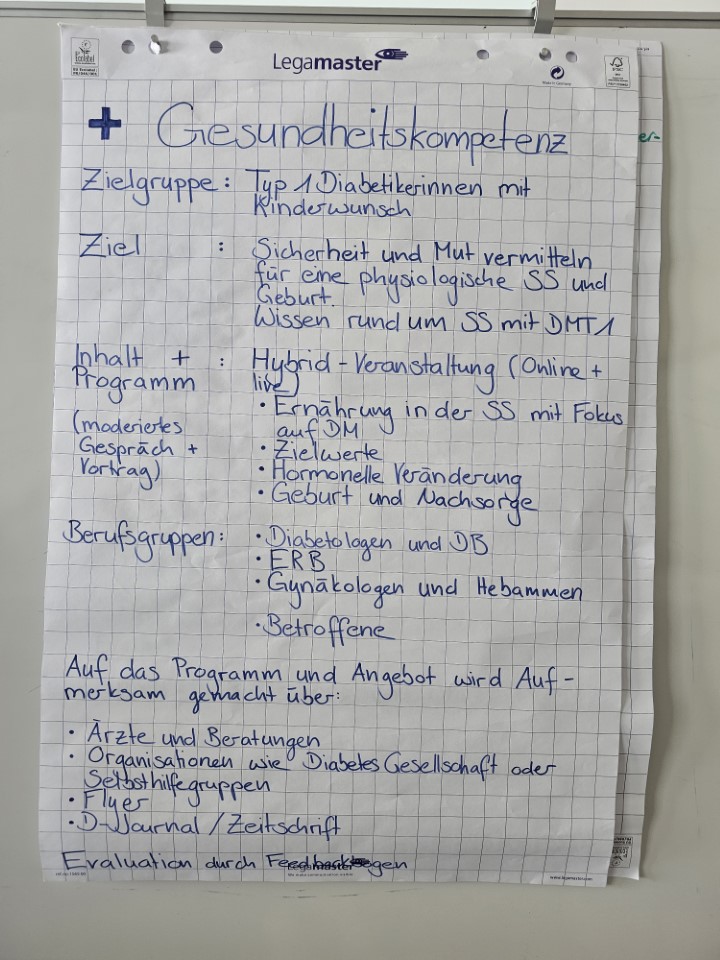 Legamaster
+ Gesundheitskompetenz
Zielgruppe: Typ 1 Diabetikerinnen mit
Kinderwunsch
Ziel : Sicherheit und Mut vermitteln
für eine physiologische SS und
Geburt.
Wissen rund um SS mit DMT1
Inhalt + : Hybrid-Veranstaltung (Online +
Programm live)
(moderiertes
Gespräch +
Vortrag)
• Ernährung in der SS mit Fokus
auf DM
• Zielwerte
• Hormonelle Veränderung
• Geburt und Nachsorge
Berufsgruppen: • Diabetologen und DB
• ERB
• Gynäkologen und Hebammen
• Betroffene
Auf das Programm und Angebot wird Auf-
merksam gemacht über:
• Ärzte und Beratungen
• Organisationen wie Diabetes Gesellschaft oder
Selbsthilfegruppen
• Flyer
• D-Journal / Zeitschrift
Evaluation durch
er-